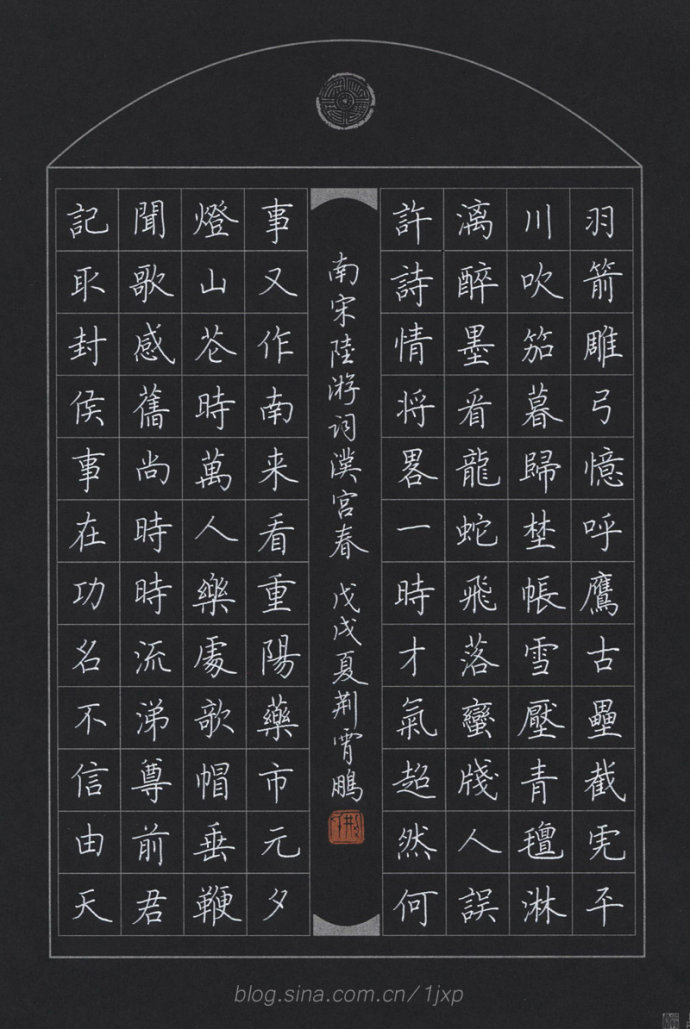 羽箭雕弓憶呼鷹古壘截虎平
川吹笳暮歸埜帳雪壓青氊淋
漓醉墨看龍蛇飛落蠻牋人誤
許詩情将畧一時才氣超然何
南宋陸游词漢宮春 戊戌夏荆霄鵬
事又作南来看重陽藥市元夕
燈山花時萬人樂處欹帽垂鞭
聞歌感舊尚時時流涕尊前君
記取封侯事在功名不信由天
blog.sina.com.cn/1jxp